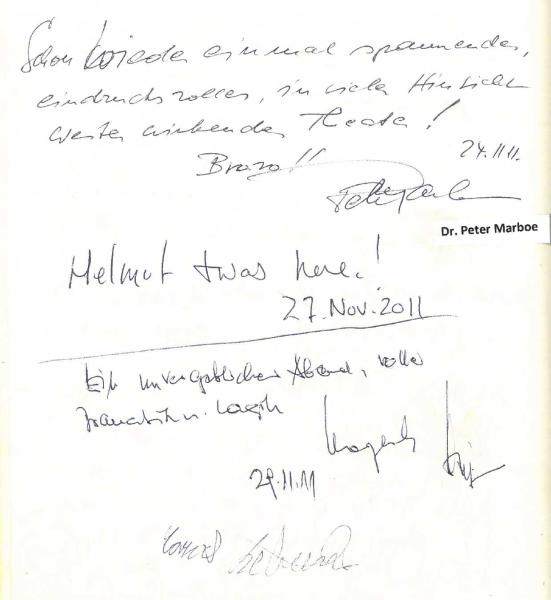 Schon wieder einmal spannendes,
eindrucksvolles, in vieler Hinsicht
weiter wirkendes Theater!
24.11.11.
Bravo!!
Dr. Peter Marboe
Helmut was here!
27. Nov. 2011
Ein unvergeßlicher Abend, voller
29.11.11